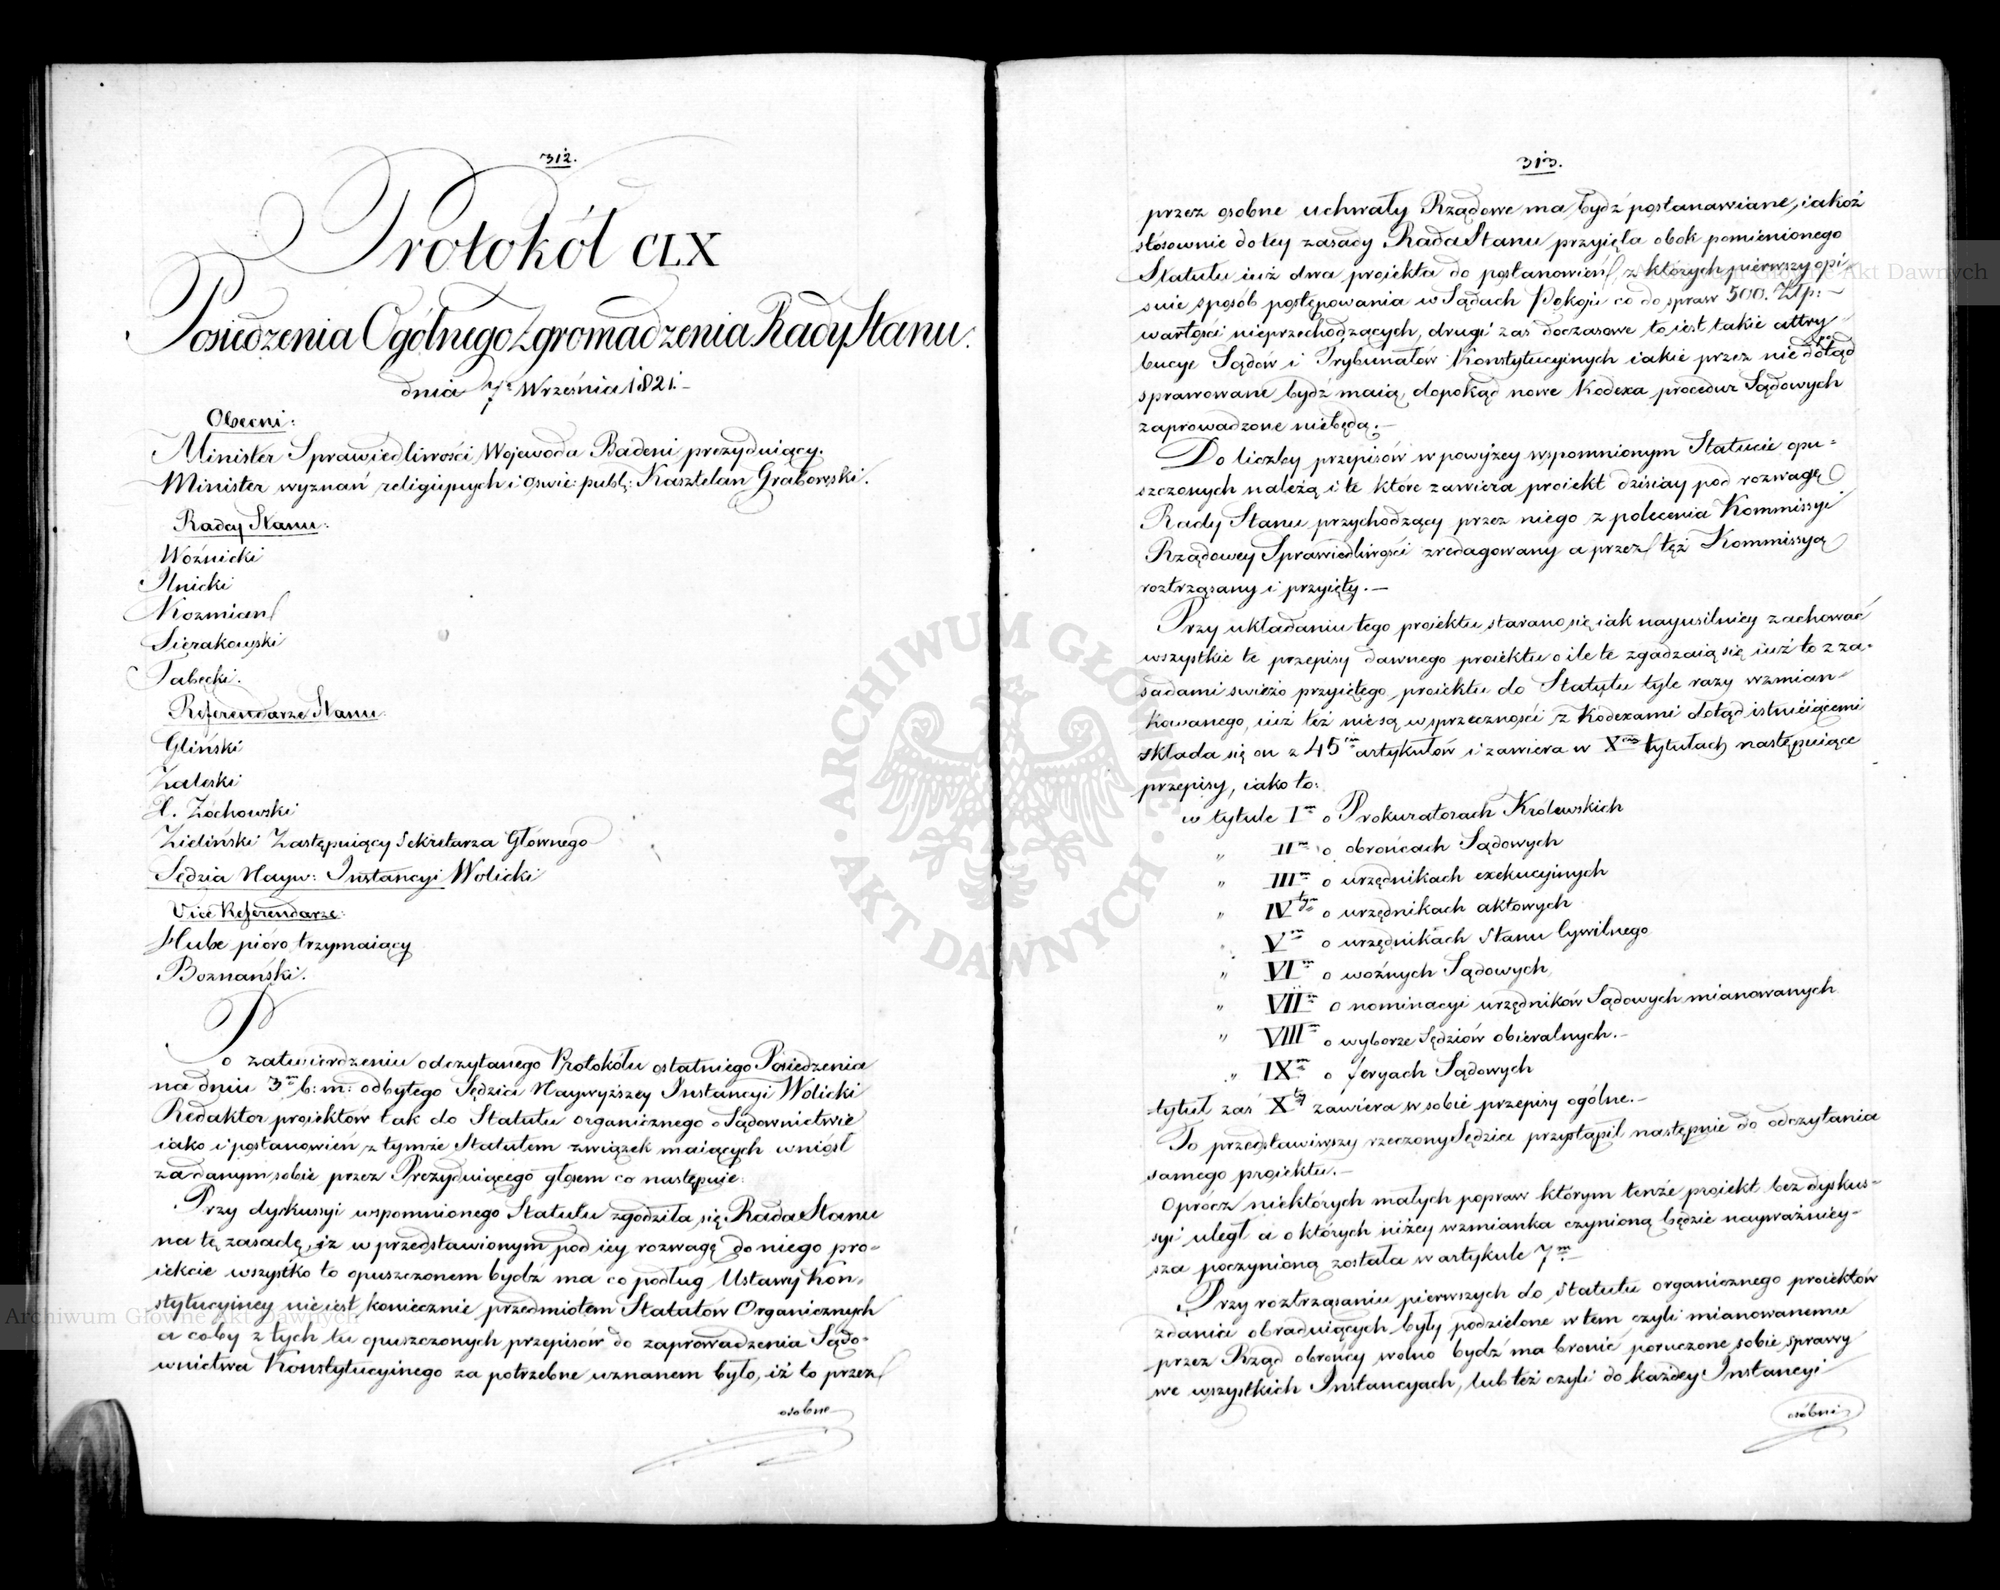 312.
Protokół CLX
Posiedzenia Ogólnego Zgromadzenia Rady Stanu.
dnia 7º Września 1821.–
Obecni:
Minister Sprawiedliwości Wojewoda Badeni prezyduiący.
Minister wyznań religiynych i oświe: publ: Kasztelan Grabowski.
Radcy Stanu:
Woźnicki
Ilnicki
Kozmian
Sierakowski
Tabęcki.
Referendarze Stanu:
Gliński
Zaleski
X. Żochowski
Zieliński Zastępuiący Sekretarza Głównego
Sędzia Nayw: Instancyi Wolicki
Vice Referendarze:
Hube pióro trzymaiący
Boznański.
Po zatwierdzeniu odczytanego Protokółu ostatniego Posiedzenia
na dniu 3m b: m: odbytego Sędzia Naywyższey Instancyi Wolicki
Redaktor proiektów tak do Statutu organicznego o Sądownictwie
iako i postanowień z tymże Statutem związek maiących wniósł
zadanym sobie przez Prezyduiącego głosem co następuie:
Przy dyskussyi wspomnionego Statutu zgodziła się Rada Stanu
na tę zasadę, iż w przedstawionym pod iey rozwagę do niego pro-
iekcie wszystko to opuszczonem bydź ma co podług Ustawy Kon-
stytucyiney nie iest koniecznie przedmiotem Statutów Organicznych
a coby z tych tu opuszczonych przepisów do zaprowadzenia Sądo-
wnictwa Konstytucyinego za potrzebne uznanem było, iż to przez
osobne
313.
przez osobne uchwały Rządowe ma bydź postanawiane, iakoż
stósownie do tey zasady Rada Stanu przyięła obok pomienionego
Statutu iuż dwa proiekta do postanowień, z których pierwszy opi-
suie sposób postępowania w Sądach Pokoiu co do spraw 500. Złp: –
wartości nieprzechodzących, drugi zaś doczasowe to iest takie attry-
bucye Sądów i Trybunałów Konstytucyinych iakie przez nie dotąd
sprawowane bydź maią, dopokąd nowe Kodexa procedur Sądowych
zaprowadzone niebędą.–
Do liczby przepisów w powyżey wspomnionym Statucie opu-
szczonych należą i te które zawiera proiekt dzisiay pod rozwagę
Rady Stanu przychodzący przez niego z polecenia Kommissyi
Rządowey Sprawiedliwości zredagowany a przez tęż Kommissyą
roztrząsany i przyięty.–
Przy układaniu tego proiektu starano się iak nayusilniey zachować
wszystkie te przepisy dawnego proiektu o ile te zgadzaią się iuż to z za-
sadami swieżo przyiętego proiektu do Statutu tyle razy wzmian-
kowanego, iuż też nie są w sprzeczności z Kodexami dotąd istnieiącemi
składa się on z 45ciu artykułów i zawiera w Xciu tytułach następuiące
przepisy, iako to:
w tytule Im o Prokuratorach Królewskich
" IIm o obrońcach Sądowych
" IIIm o urzędnikach exekucyinych
" IVtym o urzędnikach aktowych
" Vm o urzędnikach Stanu Cywilnego
" VIm o woźnych Sądowych
" VIIm o nominacyi urzędników Sądowych mianowanych
" VIIIm o wyborze Sędziów obieralnych.–
" IXm o feryach Sądowych
tytuł zaś Xty zawiera w sobie przepisy ogólne.–
To przedstawiwszy rzeczony Sędzia przystąpił następnie do odczytania
samego proiektu.–
Oprócz niektórych małych popraw którym tenże proiekt bez dyskus-
syi uległ a o których niżey wzmianka czynioną będzie nayważniey-
sza poczynioną została w artykule 7m
Przy roztrząsaniu pierwszych do Statutu organicznego proiektów
zdania obraduiących były podzielone w tem czyli mianowanemu
przez Rząd obrońcy wolno bydź ma bronić poruczone sobie sprawy
we wszystkich Instancyach, lub też czyli do każdey Instancyi
osóbni
ARCHIWUM GŁÓWNE AKT DAWNYCH
Archiwum Główne Akt Dawnych
Archiwum Główne Akt Dawnych